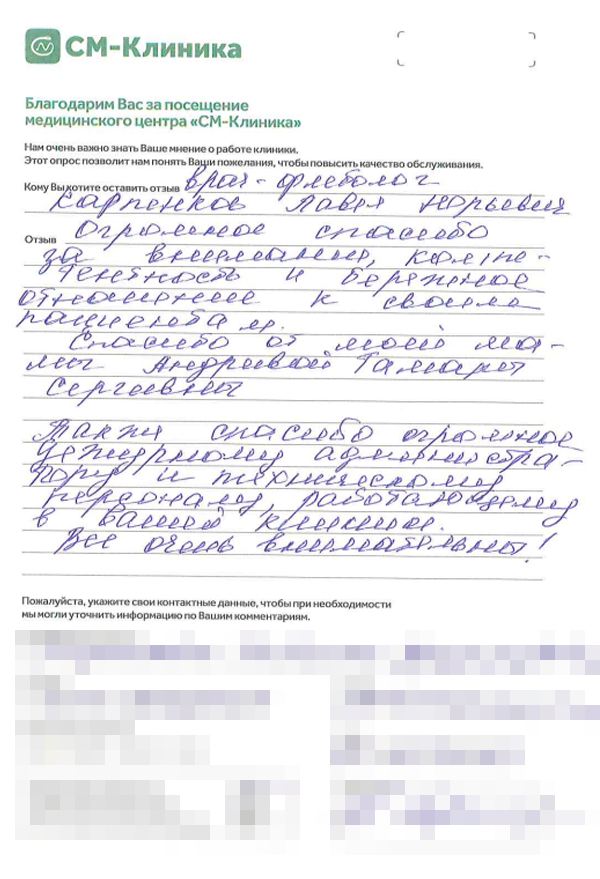 СМ-Клиника
Благодарим Вас за посещение
медицинского центра «СМ-Клиника»
Нам очень важно знать Ваше мнение о работе клиники.
Этот опрос позволит нам понять Ваши пожелания, чтобы повысить качество обслуживания.
Кому Вы хотите оставить отзыв врач-флеболог
Карпенков Павел Юрьевич
Отзыв Огромное спасибо
за внимание, компе-
тентность и бережное
отношение к своим
пациентам.
Спасибо от моей ма-
мы Андреевой Тамары
Сергеевны
Также спасибо огромное
дежурному администра-
тору и техническому
персоналу, работающему
в вашей клинике.
Все очень внимательны!
Пожалуйста, укажите свои контактные данные, чтобы при необходимости
мы могли уточнить информацию по Вашим комментариям.